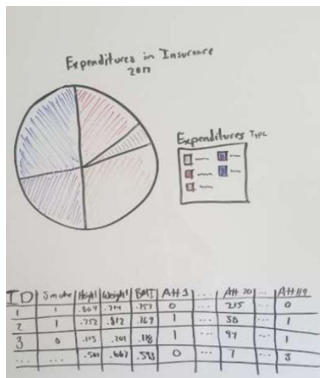 Expenditures in Insurance
2017
Expenditures Type
ID Smoke Height Weight BMI Att 1 ... Att 20 ... Att 119
1 1 .804 .714 .757 0 ... 215 ... 0
2 1 .752 .812 .769 1 ... 50 ... 1
3 0 .115 .201 .118 1 ... 97 1
... ... .501 .667 .583 0 ... 1 3